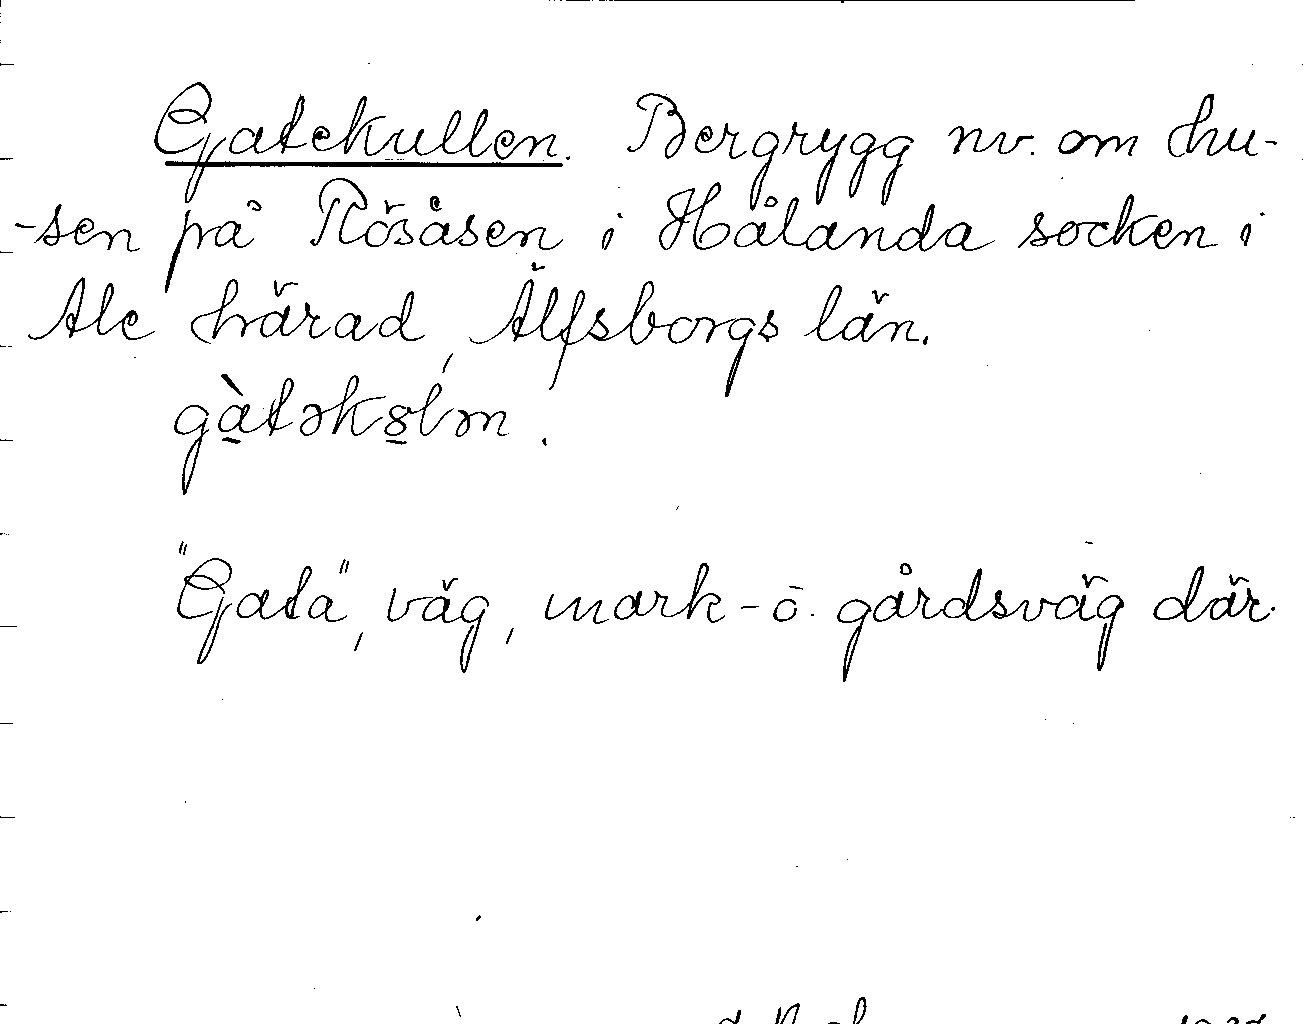 Gatekullen. Bergrygg nv. om hu-
-sen på Rösåsen i Hålanda socken i
Ale härad, Älfsborgs län.
gàtəkꝏlən.
"Gata", väg, mark- o. gårdsväg där.